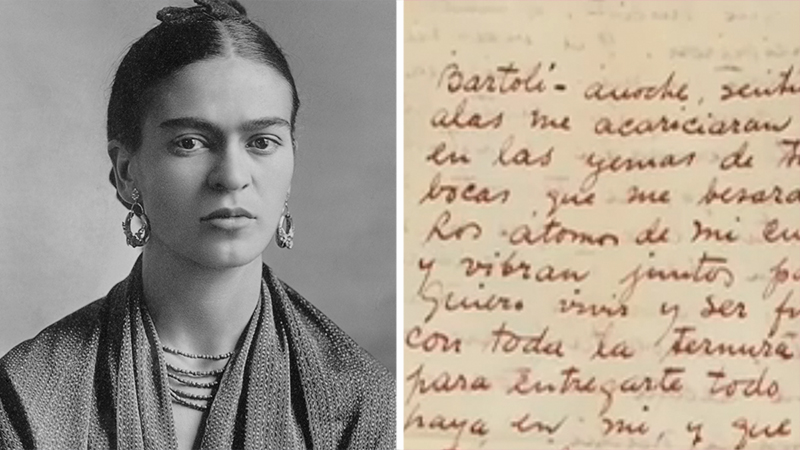 Bartolí - anoche, sentí
alas me acariciaran
en las yemas de t
bocas que me besara
Los átomos de mi cu
y vibran juntos pa
Quiero vivir y ser fu
con toda la ternura
para entregarte todo
haya en mi, y que